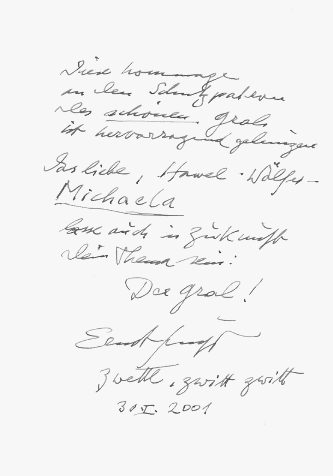 Diese hommage
an den Schutzpatron
des schönen Grals
ist hervorragend gelungen
Das liebe, Hawel-Wölfer-
Michaela
auch in Zukunft
Dein Thema sein:
Der Gral!
Ernst
Zwettl, zwitt zwitt
30 V. 2001